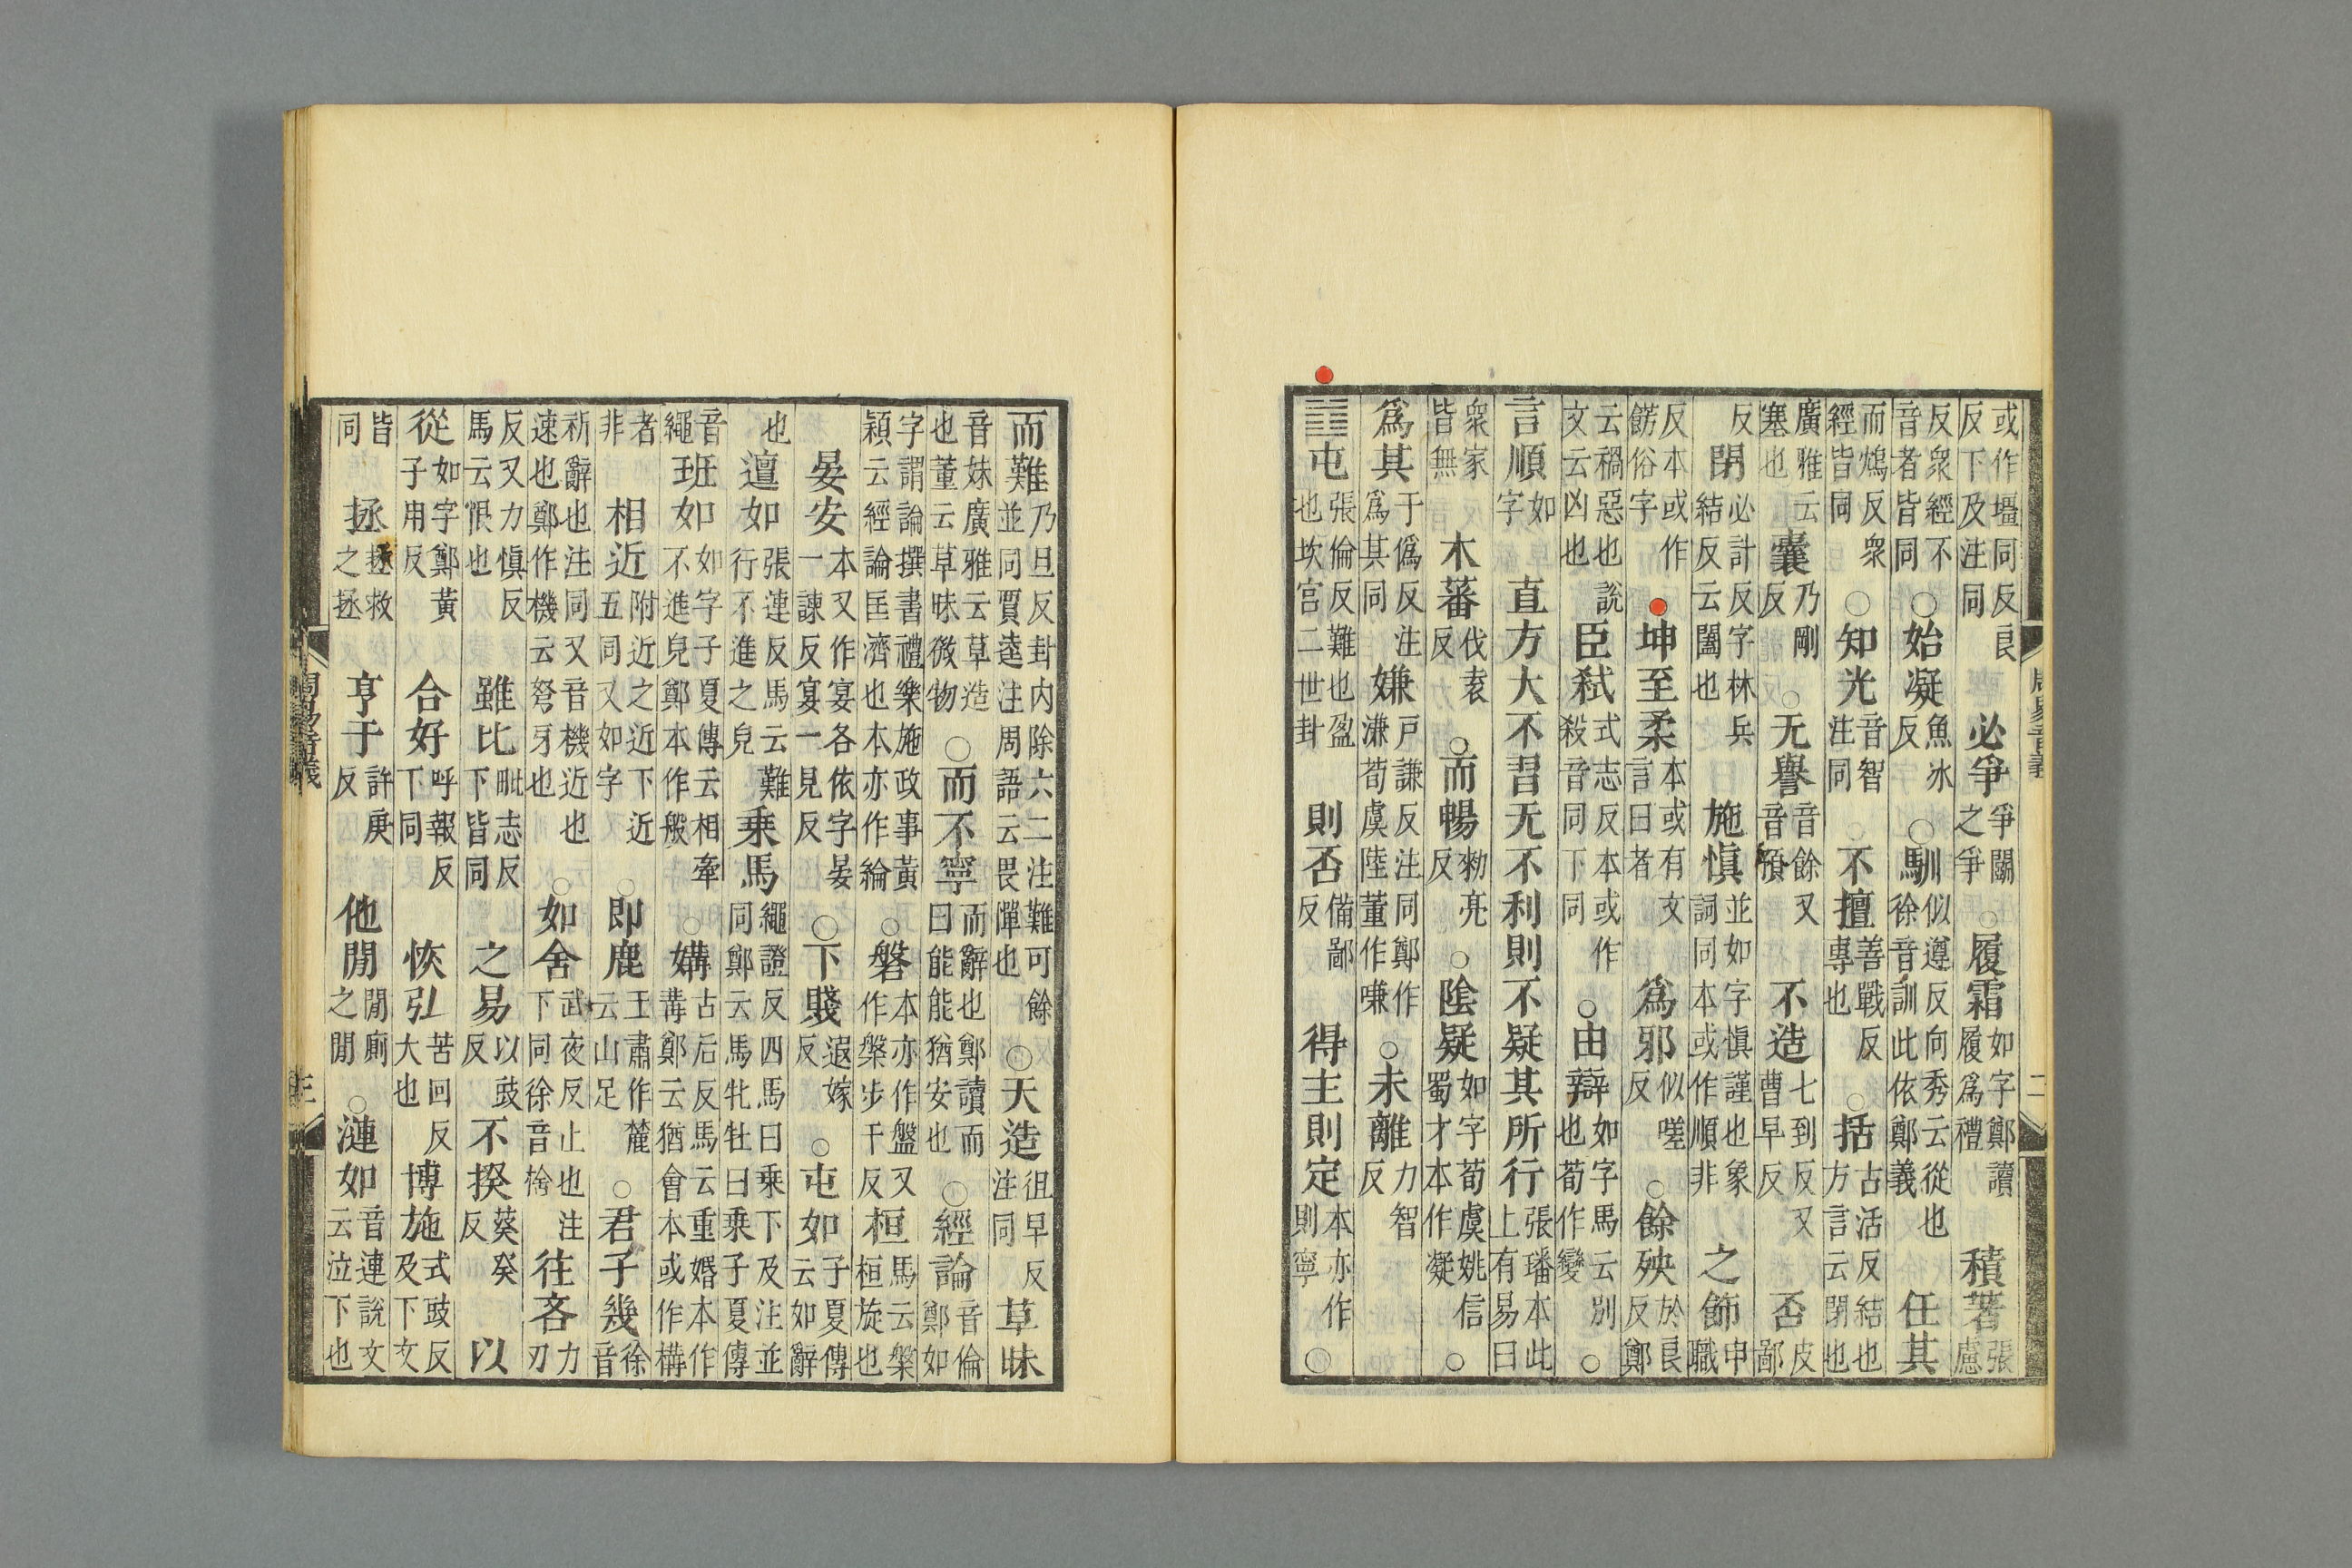 周易音義 二
或作壃同反良反下及注同 必爭爭鬭之爭○履霜如字鄭讀履爲禮 積著張慮
反衆經不音者皆同○始凝魚冰反○馴似遵反向秀云從也徐音訓此依鄭義 任其
而鴆反衆經皆同○知光音智注同○不擅善戰反專也○括古活反結也方言云閉也
廣雅云塞也 囊乃剛反○无譽音餘又音預 不造七到反又曹早反 否皮鄙
反 閉必計反字林兵結反云闔也 施愼並如字愼謹也象詞同本或作順非 之飾申職
反本或作餝俗字 坤至柔本或有文言曰者 爲邪似嗟反○餘殃於良反鄭
云禍惡也說文云凶也 臣弑式志反本或作殺音同下同○由辯如字馬云別也荀作變○
言順如字 直方大不習无不利則不疑其所行張璠本此上有易曰
衆家皆無 木蕃伐袁反○而暢勑亮反○陰疑如字荀虞姚信蜀才本作凝○
爲其于僞反注爲其同 嫌戶謙反注同鄭作溓荀虞陸董作嗛○未離力智反
䷂屯張倫反難也盈也坎宮二世卦 則否備鄙反 得主則定本亦作則寧○
而難乃旦反卦内除六二注難可餘並同賈逵注周語云畏憚也○天造徂早反注同 草昧
音妹廣雅云草造也董云草昧微物○而不寧而辭也鄭讀而曰能能猶安也○經論音倫鄭如
字謂論撰書禮樂施政事黃穎云經論匡濟也本亦作綸○磐本亦作盤又作槃步干反 桓馬云槃桓旋也
晏安本又作宴各依字晏一諫反宴一見反○下賤遐嫁反○屯如子夏傳云如辭
也 邅如張連反馬云難行不進之皃 乗馬繩證反四馬曰乗下及注並同鄭云馬牝牡曰乗子夏傳
音繩 班如如字子夏傳云相牽不進皃鄭本作般○媾古后反馬云重婚本作冓鄭云猶會本或作構
者非 相近附近之近下近五同又如字○即鹿王肅作麓云山足○君子幾徐音
祈辭也注同又音機近也速也鄭作機云弩牙也○如舍武夜反止也注下同徐音捨 往吝力刃
反又力愼反馬云恨也 雖比毗志反下皆同 之易以豉反 不揆葵癸反 以
從如字鄭黃子用反 合好呼報反下同 恢弘苦回反大也 博施式豉反及下文
皆同 拯拯救之拯 亨于許庚反 他閒閒廁之閒○漣如音連說文云泣下也
周易音義 三